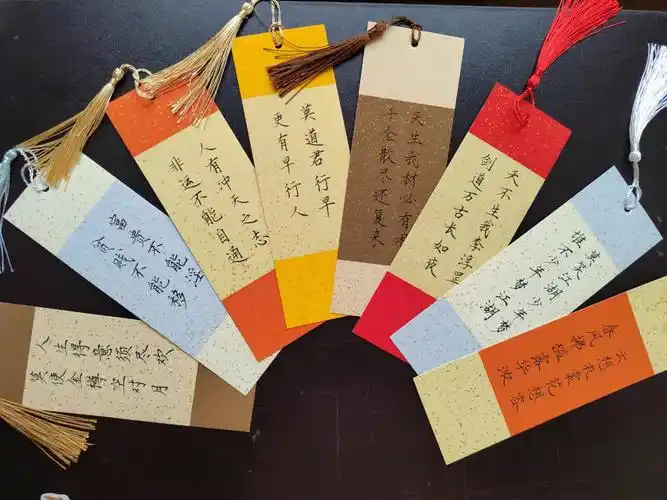 人生得意须尽欢
莫使金樽空对月
富贵不能淫
贫贱不能移
人有冲天之态
非运不能自通
莫道君行早
更有早行人
天生我材必有用
千金散尽还复来
天不生我李淳罡
剑道万古长如夜
莫笑江湖少年梦
谁不少年梦江湖
云想衣裳花想容
春风拂槛露华浓